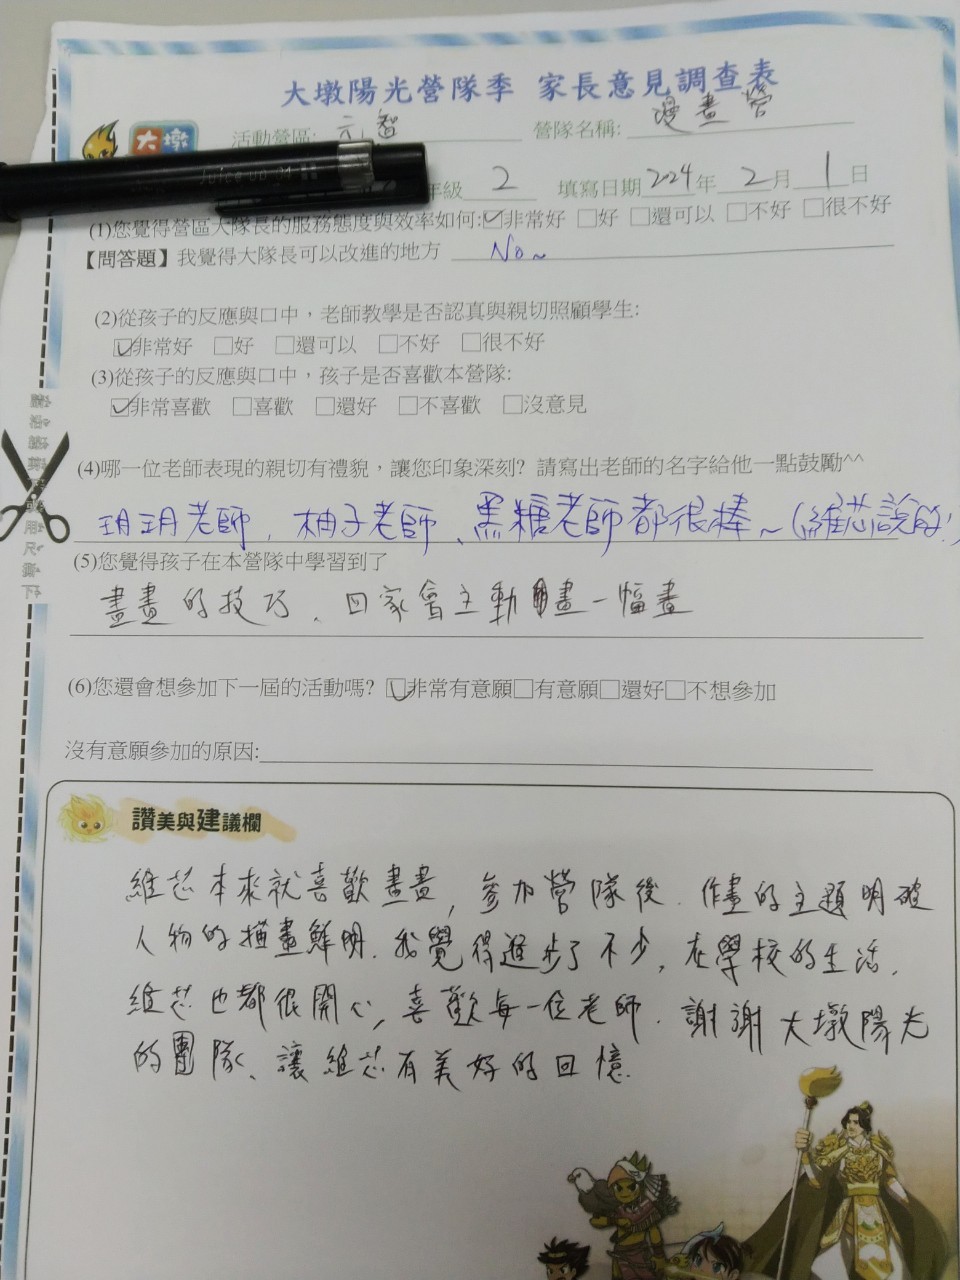 大墩陽光營隊季 家長意見調查表
大墩
活動營區: 元智 營隊名稱: 漫畫營
年級 2 填寫日期 2024年 2月 1日
(1)您覺得營區大隊長的服務態度與效率如何:☑非常好 □好 □還可以 □不好 □很不好
【問答題】我覺得大隊長可以改進的地方 No~
(2)從孩子的反應與口中，老師教學是否認真與親切照顧學生:
☑非常好 □好 □還可以 □不好 □很不好
(3)從孩子的反應與口中，孩子是否喜歡本營隊:
☑非常喜歡 □喜歡 □還好 □不喜歡 □沒意見
(4)哪一位老師表現的親切有禮貌，讓您印象深刻? 請寫出老師的名字給他一點鼓勵^^
玥玥老師、柚子老師、黑糖老師都很棒~(維芯說的!)
(5)您覺得孩子在本營隊中學習到了
畫畫的技巧、回家會主動畫一幅畫
(6)您還會想參加下一屆的活動嗎? ☑非常有意願□有意願□還好□不想參加
沒有意願參加的原因:
讚美與建議欄
維芯本來就喜歡畫畫，參加營隊後．作畫的主題明確
人物的描畫鮮明．我覺得進步了不少，在學校的生活，
維芯也都很開心，喜歡每一位老師．謝謝大墩陽光
的團隊、讓維芯有美好的回憶．